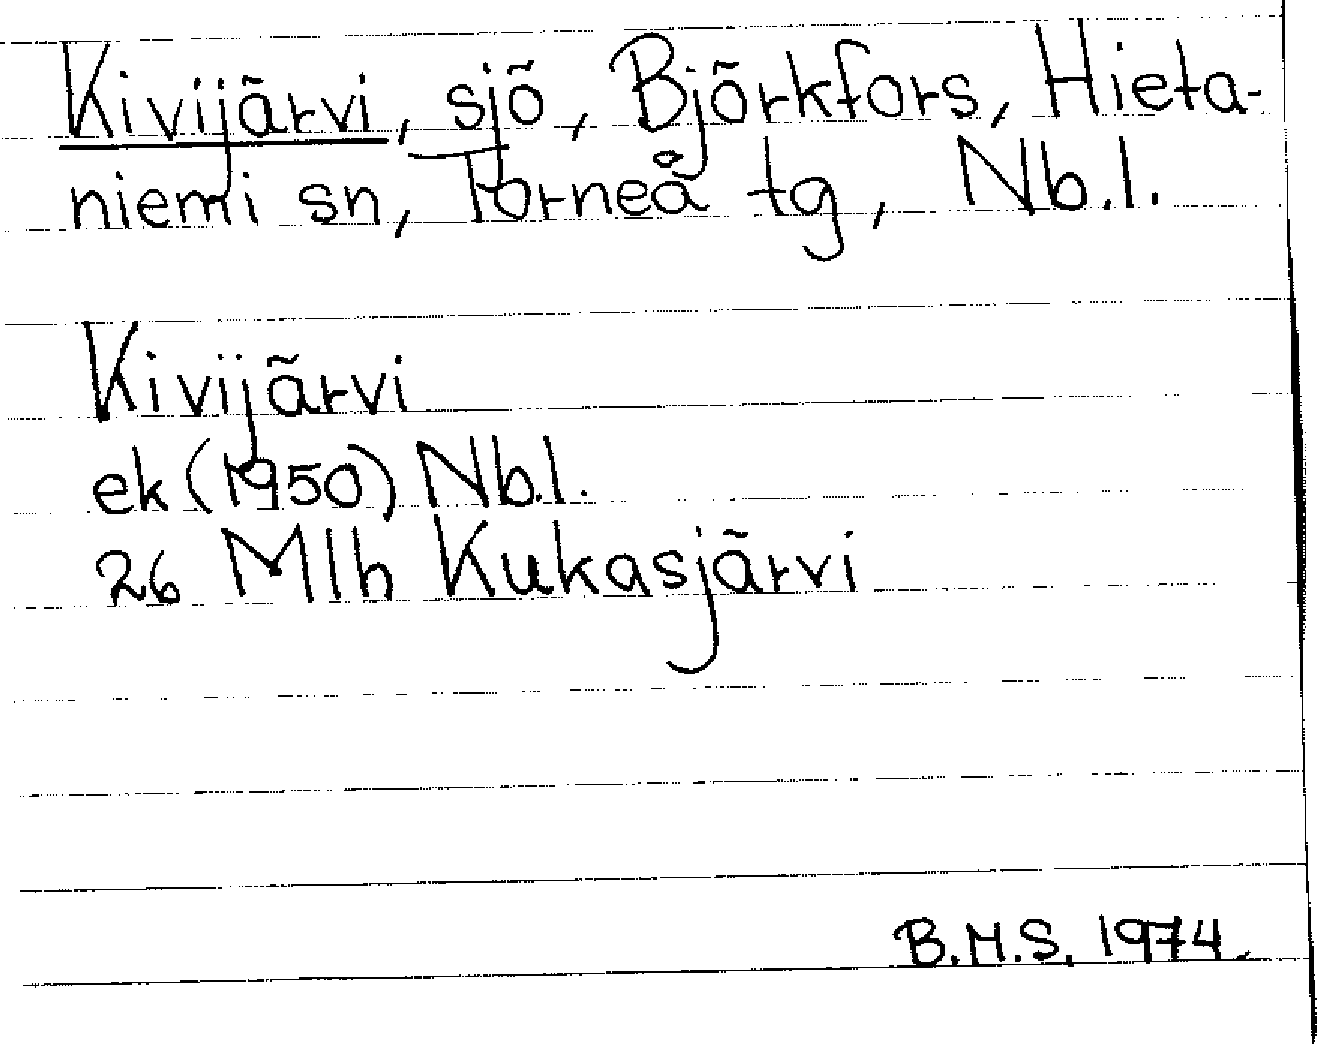 Kivijärvi, sjö, Björkfors, Hieta-
niemi sn, Torneå tg, Nb.l.
Kivijärvi
ek (1950) Nb.l.
26 Mlh Kukasjärvi
B.M.S. 1974.